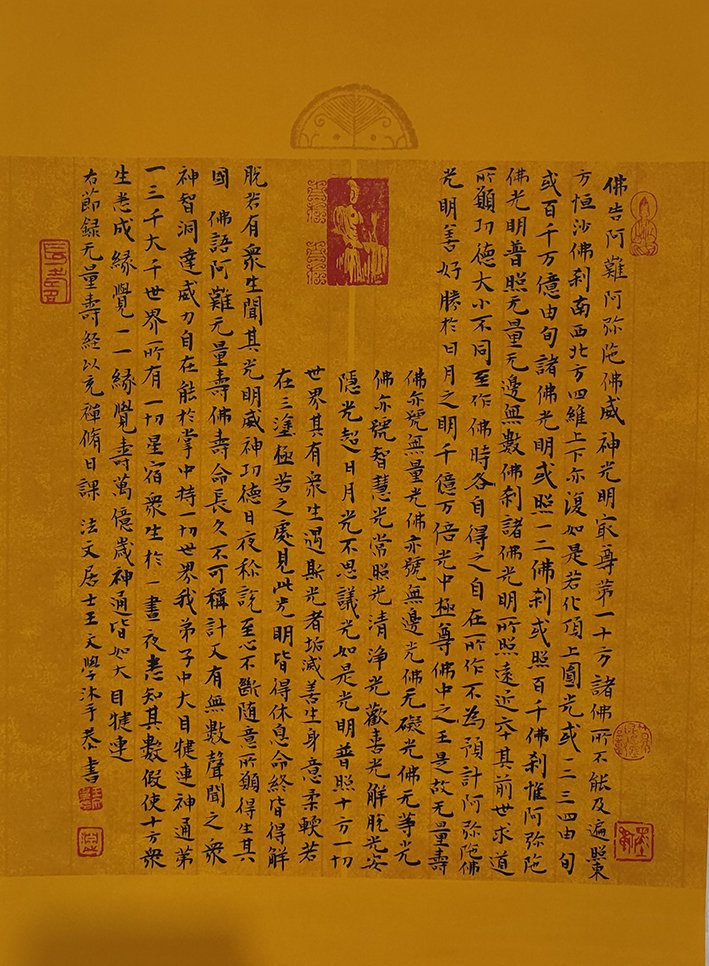 佛告阿難阿弥陁佛威神光明㝡尊第一十方諸佛所不能及遍照東
方恒沙佛刹南西北方四維上下亦復如是若化頂上圓光或一二三四由旬
或百千万億由旬諸佛光明或照一二佛刹或照百千佛刹惟阿弥陁
佛光明普照无量无邊無數佛刹諸佛光明所照遠近本其前世求道
所願功德大小不同至作佛時各自得之自在所作不為預計阿弥陁佛
光明善好勝於日月之明千億万倍光中極尊佛中之王是故无量壽
佛亦號無量光佛亦號無邊光佛无礙光佛无等光
佛亦號智慧光常照光清淨光歡喜光解脫光安
隱光超日月光不思議光如是光明普照十方一切
世界其有衆生遇斯光者垢滅善生身意柔輭若
在三塗極苦之處見此光明皆得休息命終皆得解
脫若有衆生聞其光明威神功德日夜称說至心不斷随意所願得生其
國 佛語阿難无量壽佛壽命長久不可稱計又有無數聲聞之衆
神智洞達威力自在能於掌中持一切世界我弟子中大目犍連神通第
一三千大千世界所有一切星宿衆生於一晝夜悉知其數假使十方衆
生悉成緣覺一一緣覺壽萬億歲神通皆如大目犍連
右節録无量壽経以充禪脩日課 法文居士王文學沐手恭書
長壽